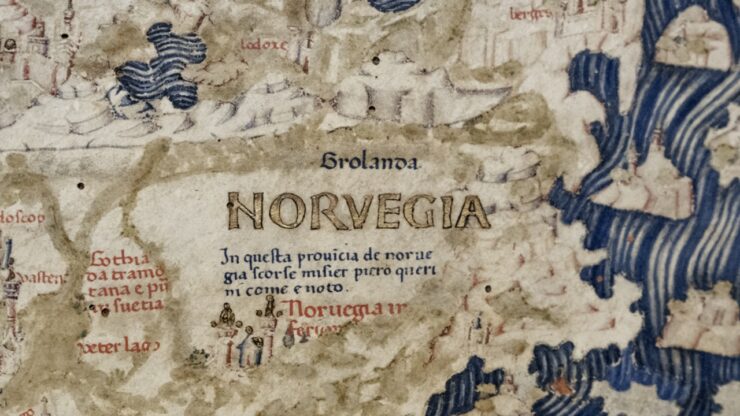 bergis
lodoxe
Grolanda
NORVEGIA
In questa provicia de norue
gia scorse misier piero queri
ni come e noto.
Gothia
da tramo
tana e pu
in suetia
Norvegia in
veter lago